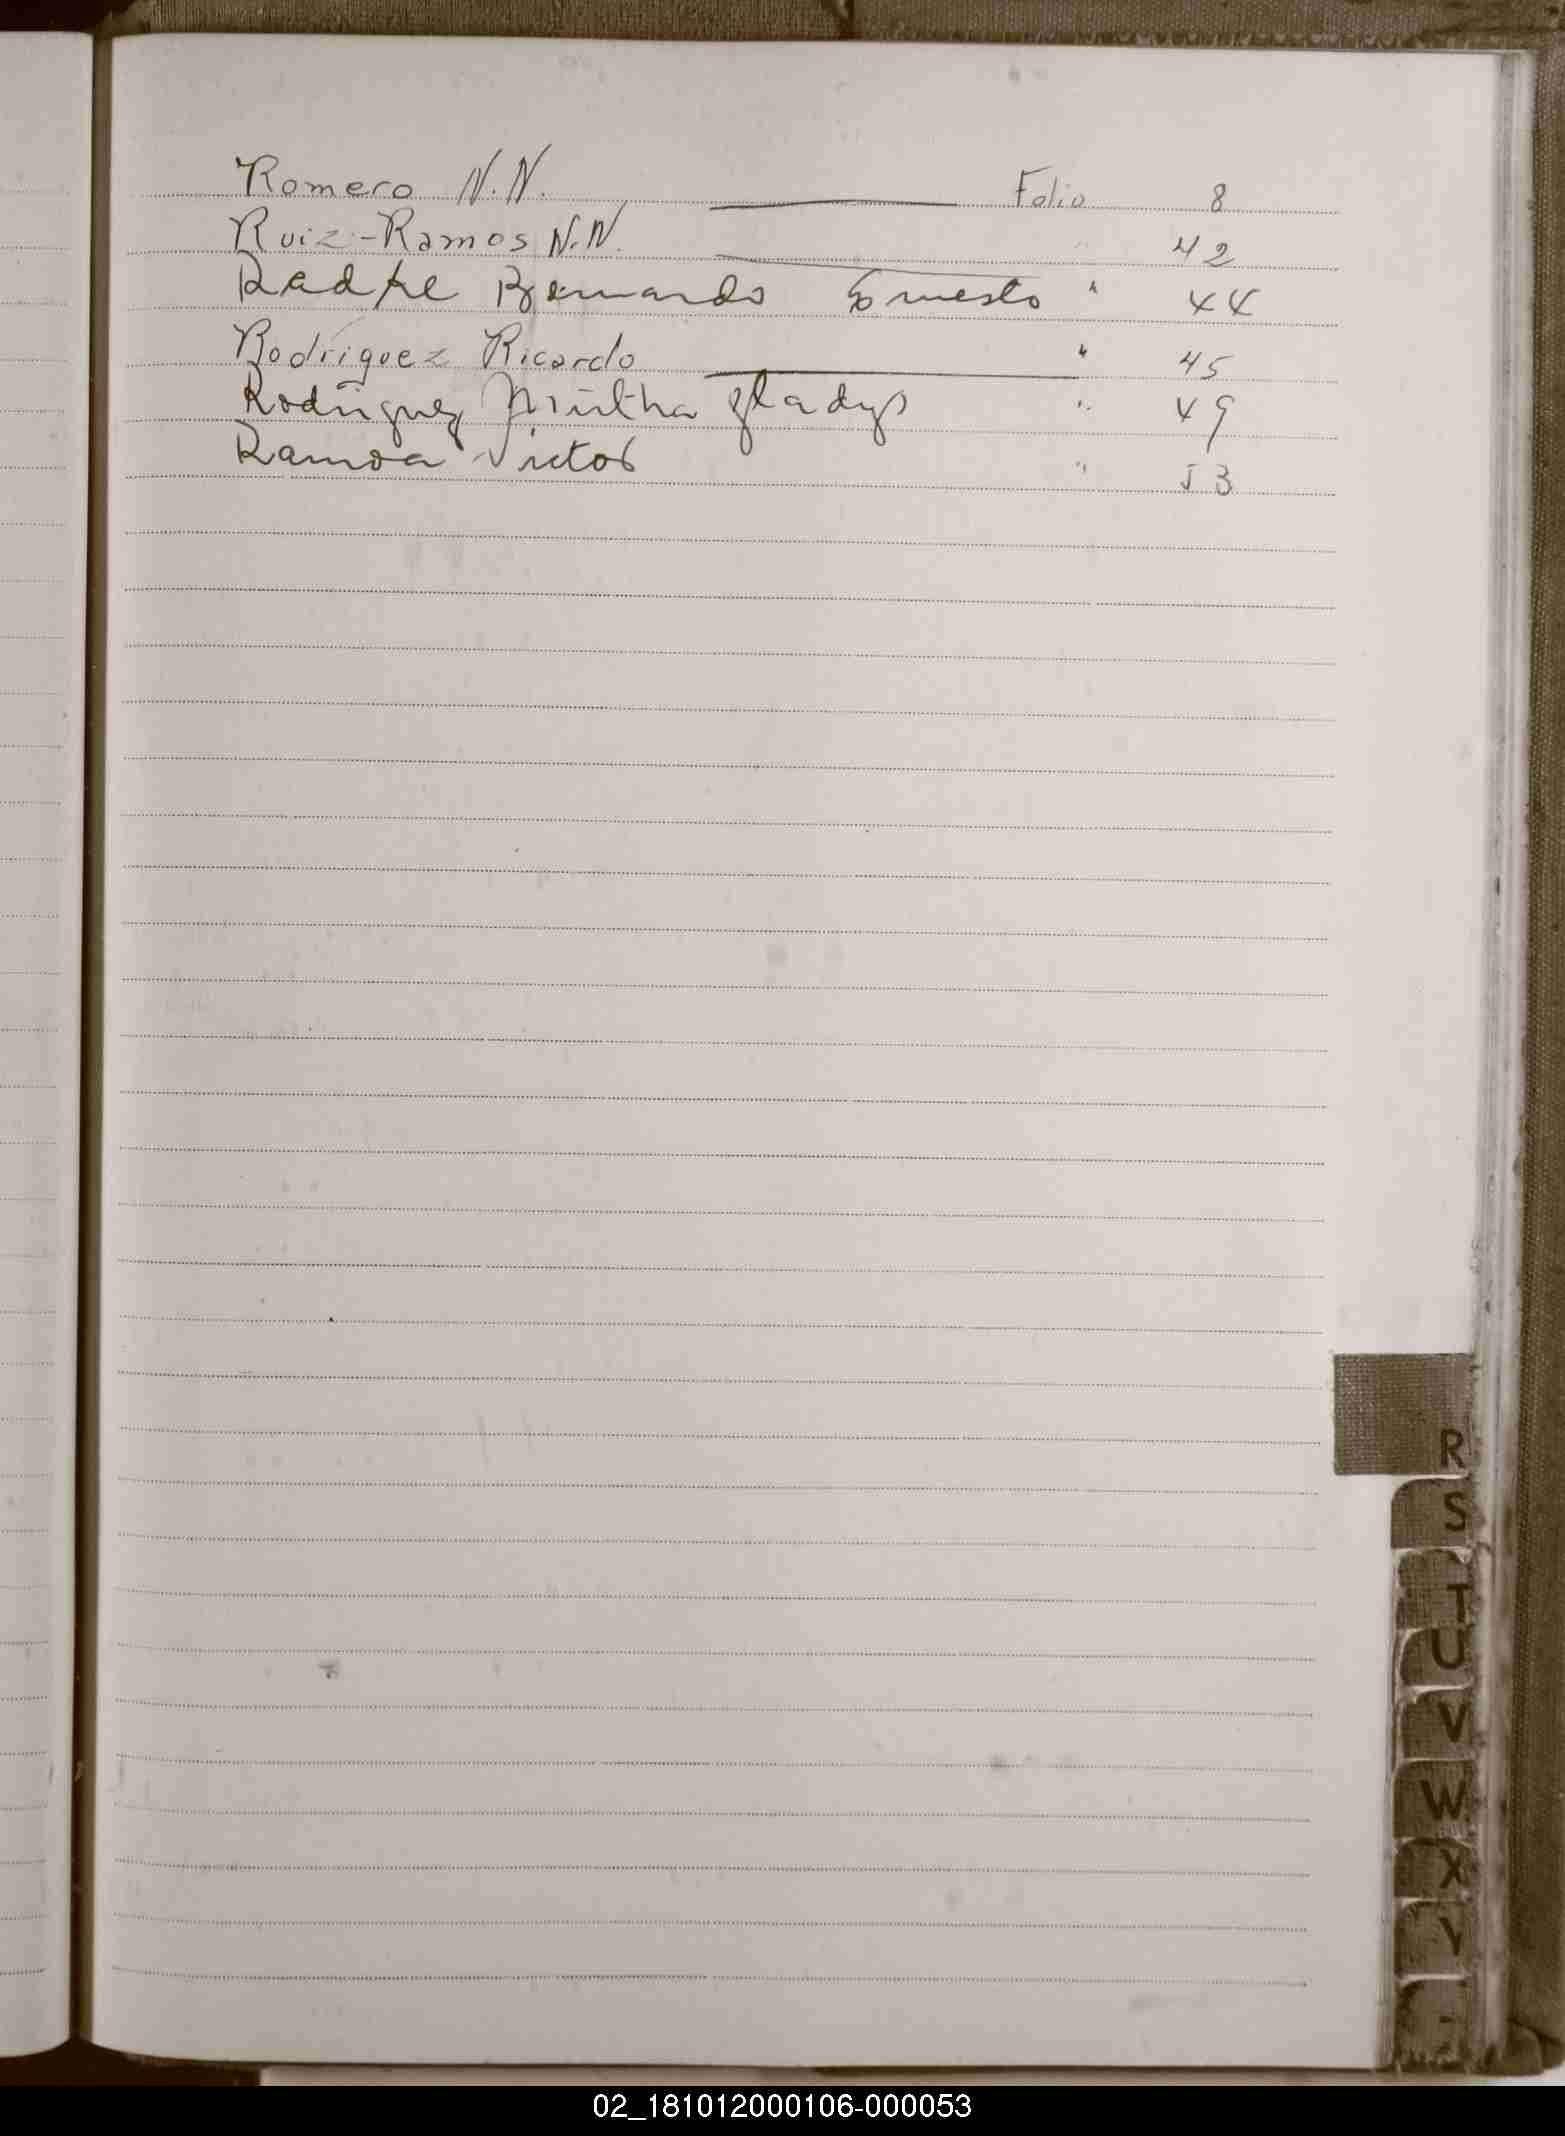 Romero N.N. Folio 8
Ruiz-Ramos N.N. 42
Radke Bernardo Ernesto " 44
Rodriguez Ricardo " 45
Rodriguez Mirtha Gladys " 49
Ramoa Victor " 53
R
S
T
U
V
W
X
Y
02_181012000106-000053